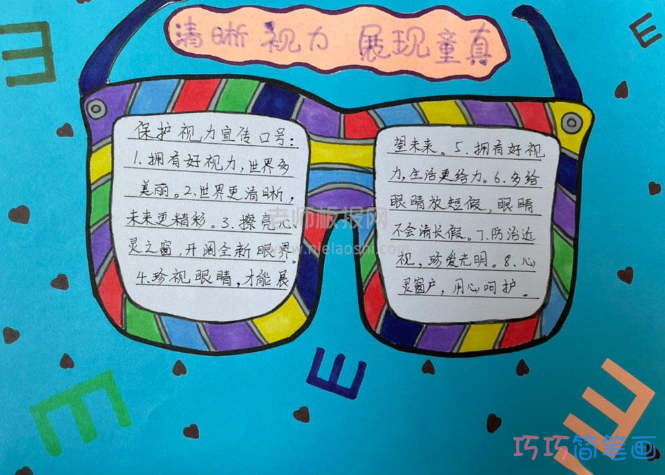 清晰视力 展现童真
保护视力宣传口号：
1.拥有好视力，世界多
美丽。2.世界更清晰，
未来更精彩。3.擦亮心
灵之窗，开阔全新眼界。
4.珍视眼睛，才能展
望未来。5.拥有好视
力，生活更给力。6.多给
眼睛放短假，眼睛
不会请长假。7.防治近
视、珍爱光明。8.心
灵窗户，用心呵护。
老师板报网
www.nielaoshi.com
E
E
E
E
E
E
巧巧简笔画